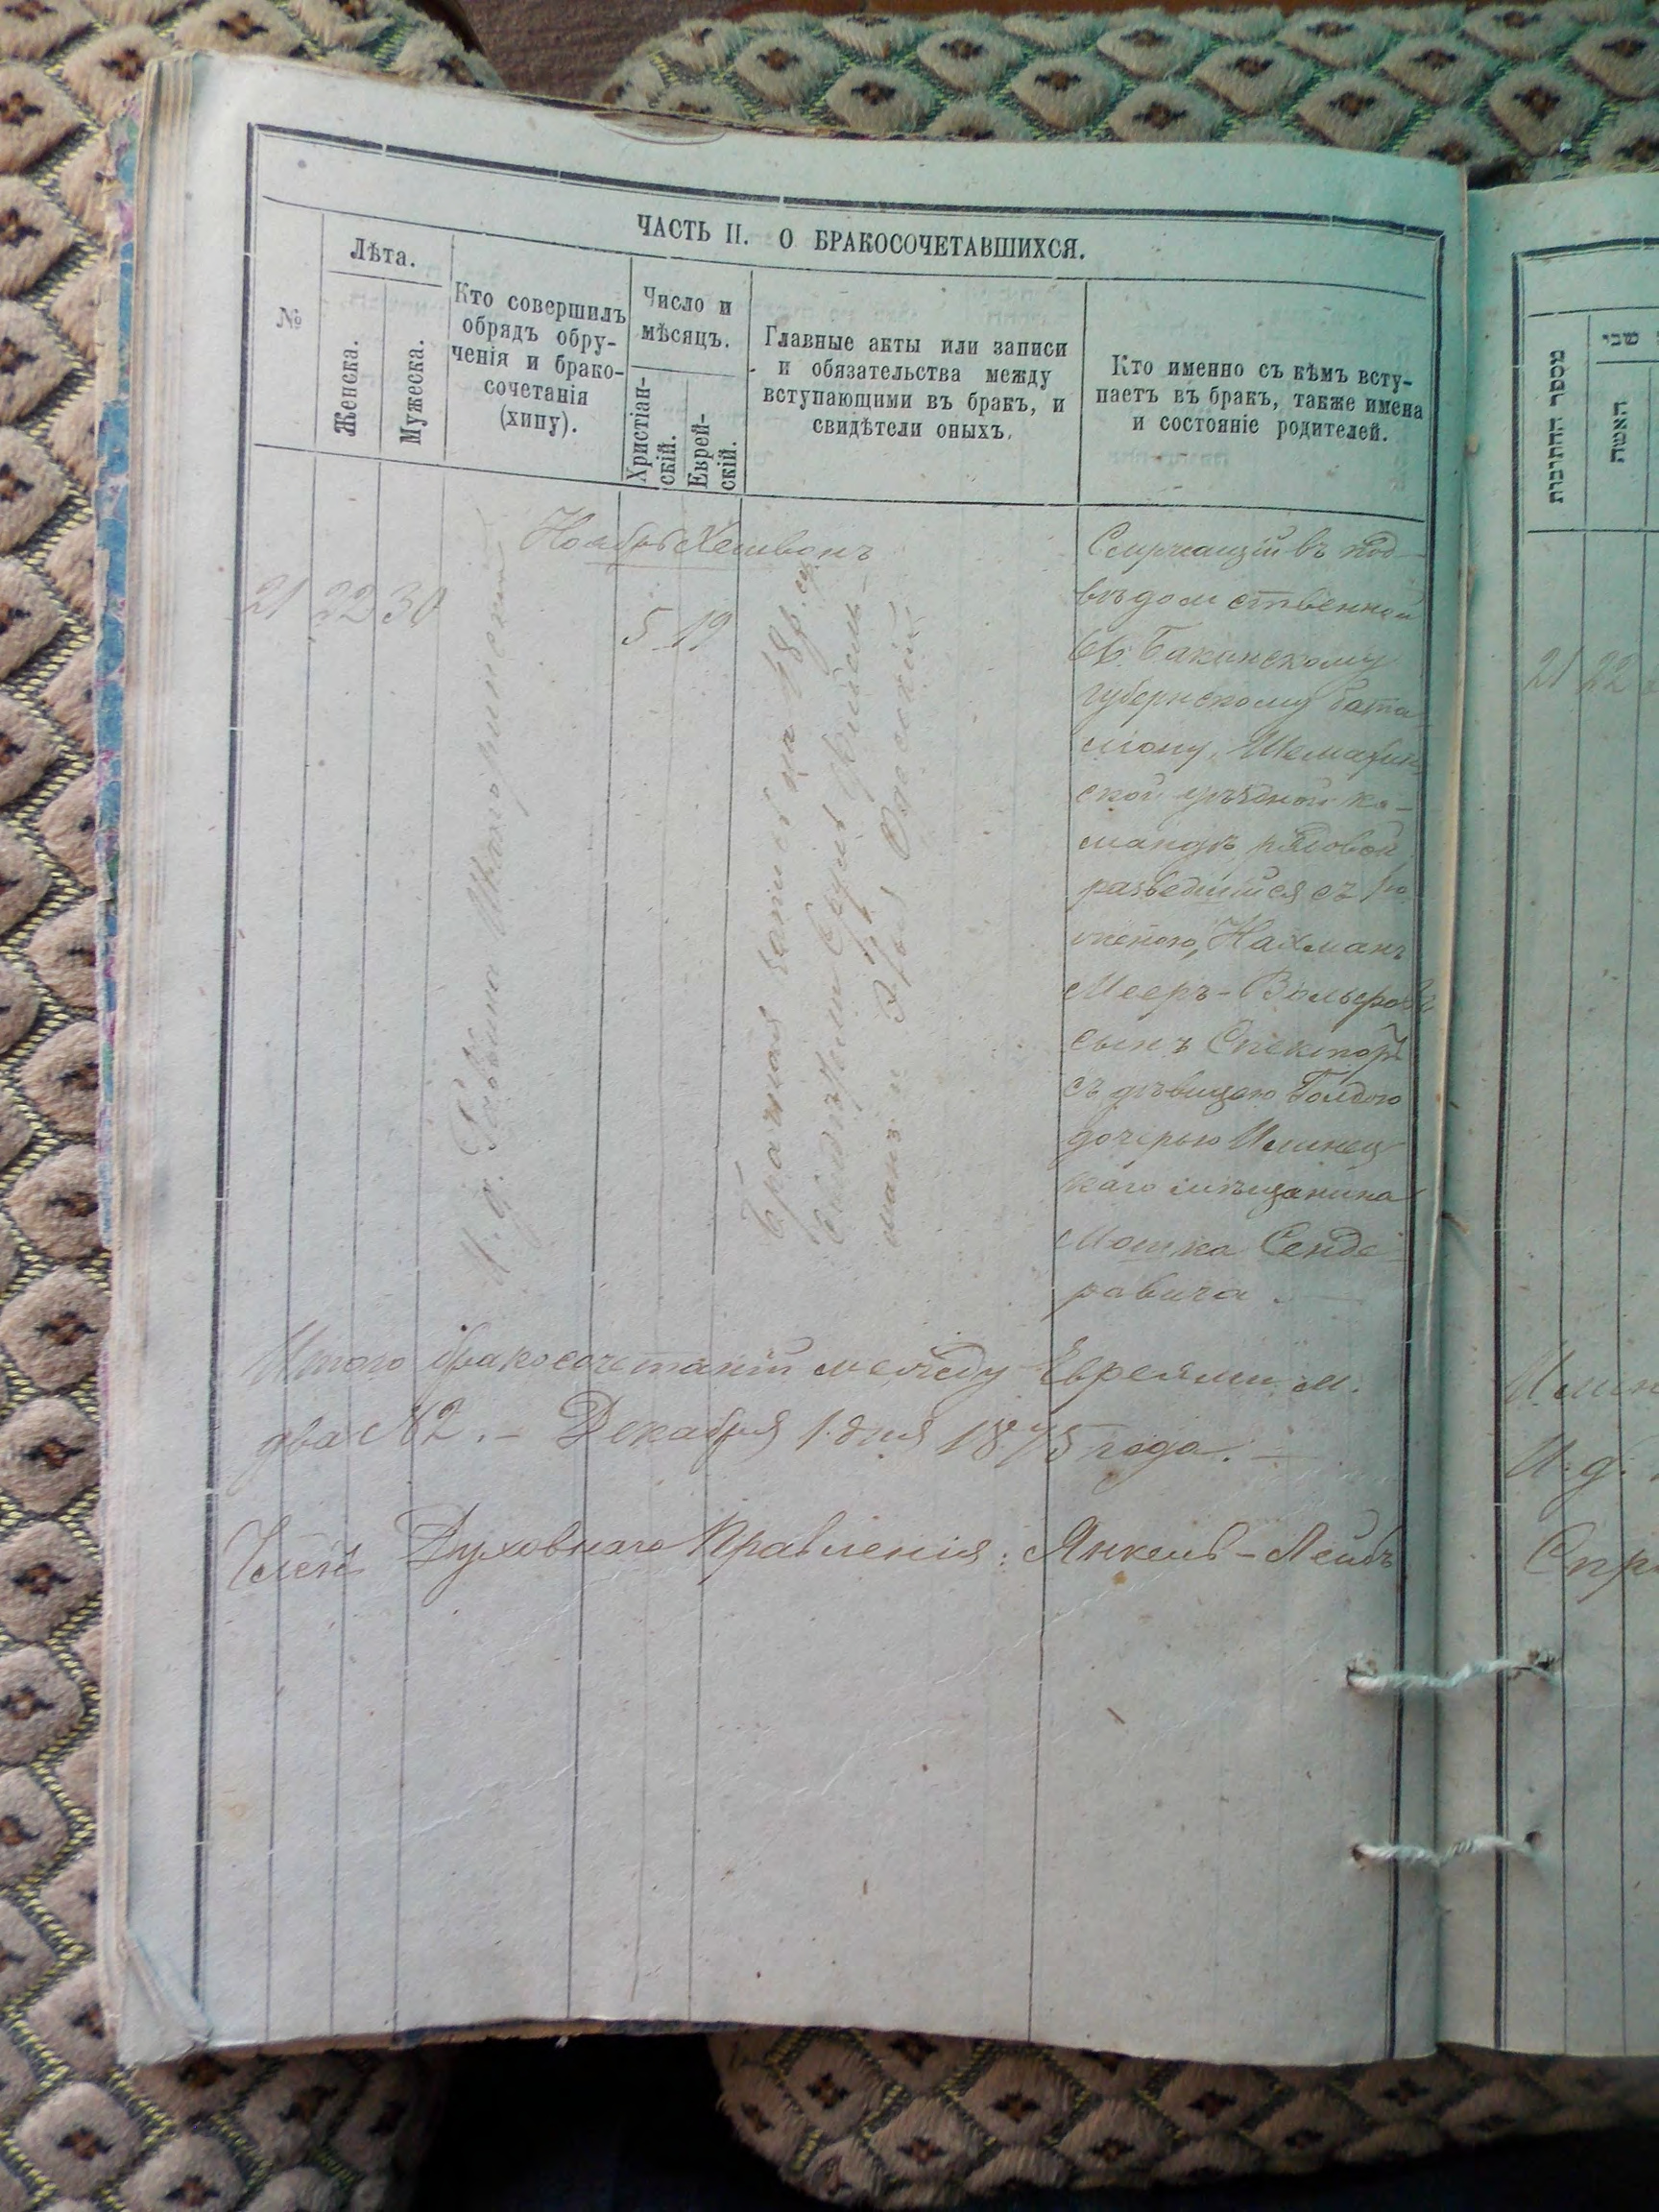 ЧАСТЬ II. О БРАКОСОЧЕТАВШИХСЯ.
№
Лѣта.
Женска.
Мужеска.
Кто совершилъ
обрядъ обру-
ченія и брако-
сочетанія
(хипу).
Число и
мѣсяцъ.
Христіан-
скій.
Еврей-
скій.
Главные акты или записи
и обязательства между
вступающими въ брак, и
свидѣтели оныхъ.
Кто именно съ кѣмъ всту-
паетъ въ бракъ, также имена
и состояніе родителей.
Ноябрь Хешвонъ
21 22 30
5 19
И. д. Раввина
Брачная запись на 48 р. с.
Свидѣтели
и
Служащій въ под-
вѣдомственной
Бакинскому
губернскому бата
ліону, Шемахин
ской уѣздной ко-
мандѣ рядовой
разведшійся съ
женою, Нахманъ
Мееръ-
сынъ Спекторъ
съ дѣвицею Голдою
дочерью Илинец
каго мѣщанина
Мошка Сенде
ровича.
Итого бракосочетаній между Евреями м.
два №2. - Декабря 1 дня 1875 года. -
Членъ Духовнаго Правленія: Янкель-Лейбъ
מספר החתונות
שני
האשה
21 22
И. д.